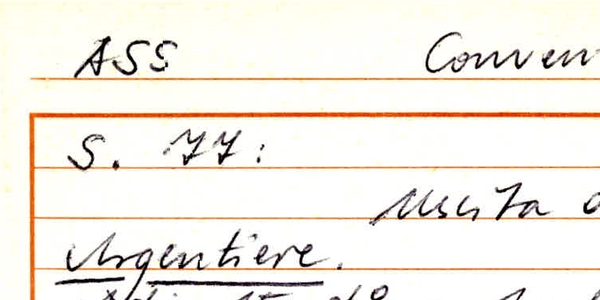 ASS Conven
S. 77:
Uscita
Argentiere.